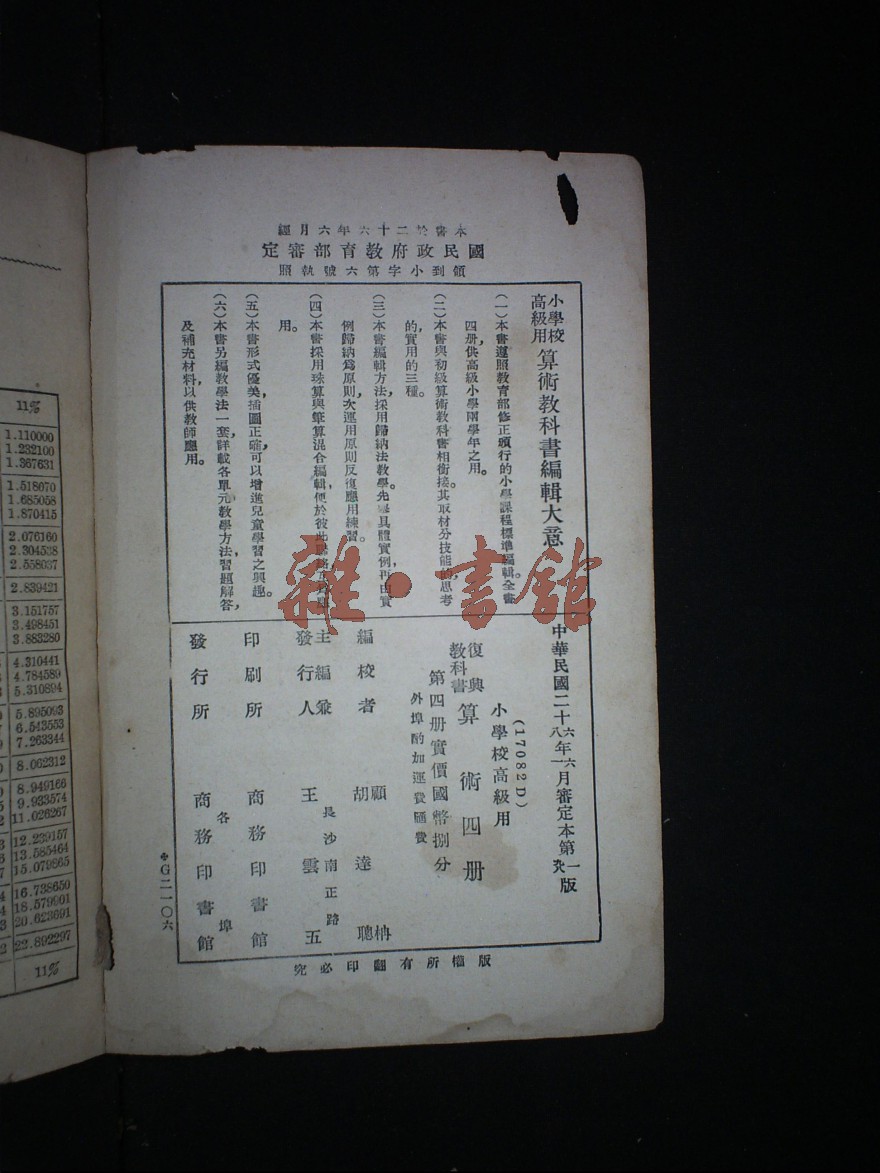 本書於二十六年六月經
國民政府教育部審定
領到小字第六號執照
小學校
高級用
算術教科書編輯大意
(一)本書遵照教育部修正頒行的小學課程標準編輯。全書
四册,供高級小學兩學年之用。
(二)本書與初級算術教科書相銜接。其取材分技能的,思考
的,實用的三種。
(三)本書編輯方法,採用歸納法教學。先舉具體實例,再由實
例歸納爲原則,次運用原則反復應用練習。
(四)本書採用珠算與筆算混合編輯,便於彼此
用。
(五)本書形式優美,插圖正確,可以增進兒童學習之興趣。
(六)本書另編教學法一套,詳載各單元教學方法,習題解答,
及補充材料,以供教師應用。
中華民國二十六年六月審定本第一版
八 一
(17082D)
小學校高級用
復興
教科書
算術四册
第四册實價國幣捌分
外埠酌加運費匯費
編校者 顧枬 胡達聰
主編兼
發行人
王雲五
長沙南正路
印刷所 商務印書館
發行所 商務印書館
各埠
版權所有翻印必究
G二一〇六
雜·書館
11%
1.110000
1.232100
1.367631
1.518070
1.685058
1.870415
2.076160
2.304538
2.558037
2.839421
3.151757
3.498451
3.883280
4.310441
4.784589
5.310894
5.895093
6.543553
7.263344
8.062312
8.949166
9.933574
11.026267
12.239157
13.585464
15.079865
16.738650
18.579901
20.623691
22.892297
11%